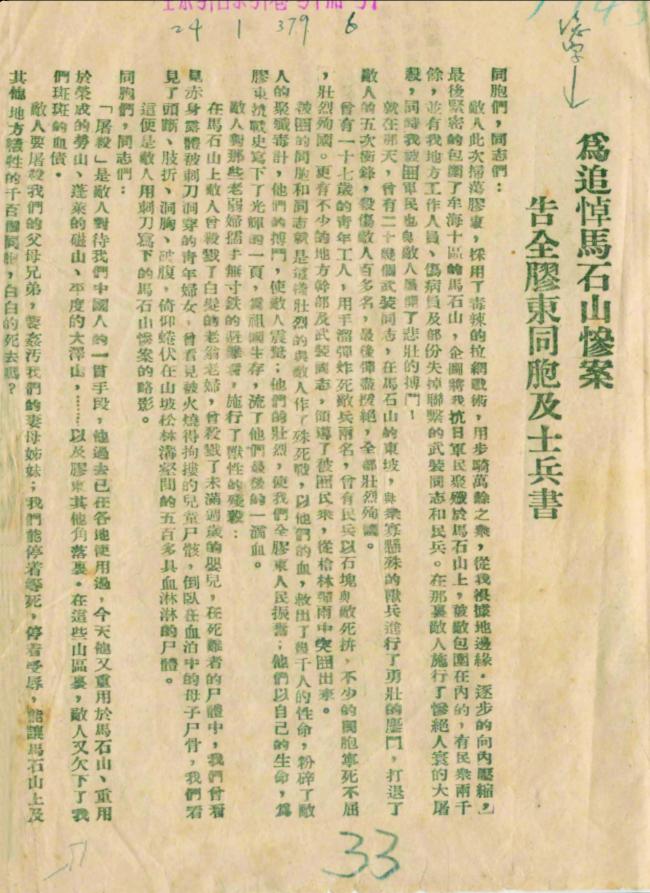 24 1 379 6
為追悼馬石山慘案
告全膠東同胞及士兵書
同胞們，同志們：
敵人此次掃蕩膠東，採用了毒辣的拉網戰術，用步騎萬餘之衆，從我根據地邊緣，逐步的向內壓縮，
最後緊密的包圍了牟海十區的馬石山，企圖將我抗日軍民聚殲於馬石山上，被敵包圍在內的，有民衆兩千
餘，並有我地方工作人員、傷病員及部份失掉聯繫的武裝同志和民兵。在那裏敵人施行了慘絕人寰的大屠
殺，同時我被圍軍民也與敵人展開了悲壯的搏鬥！
就在那天，曾有二十幾個武裝同志，在馬石山的東坡，與衆寡懸殊的獸兵進行了勇壯的鏖鬥，打退了
敵人的五次衝鋒，殺傷敵人百多名，最後彈盡援絕，全部壯烈殉國。
曾有一十七歲的青年工人，用手溜彈炸死敵兵兩名，曾有民兵以石塊與敵死拚，不少的同胞寧死不屈
，壯烈殉國。更有不少的地方幹部及武裝同志，領導了被圍民衆，從槍林彈雨中突圍出來。
被圍的同胞和同志就是這樣壯烈的與敵人作了殊死戰，以他們的血，救出了幾千人的性命，粉碎了敵
人的聚殲毒計，他們的搏鬥，使敵人震驚；他們的壯烈，使我們全膠東人民振奮；他們以自己的生命，為
膠東抗戰史寫下了光輝的一頁，為祖國生存，流了他們最後的一滴血。
敵人對那些老弱婦孺手無寸鐵的 ，施行了獸性的殘殺：
在馬石山上敵人曾殺戮了白髮的老翁老婦，曾殺戮了未滿週歲的嬰兒，在死難者的尸體中，我們曾看
見赤身露體被刺刀洞穿的青年婦女，曾看見被火燒得拘摟的兒童尸骸，倒臥在血泊中的母子尸骨，我們看
見了頭斷、肢折、洞胸、破腹，倚仰蜷伏在山坡松林溝壑間的五百多具血淋淋的尸體。
這便是敵人用刺刀寫下的馬石山慘案的略影。
同胞們，同志們：
「屠殺」是敵人對待我們中國人的一貫手段，他過去已在各地使用過，今天他又重用於馬石山、重用
於榮成的勞山、蓬萊的磁山、平度的大澤山，……以及膠東其他角落裏。在這些山區裏，敵人又欠下了我
們斑斑的血債。
敵人要屠殺我們的父母兄弟，要姦汚我們的妻母姊妹；我們能停着等死，停着受辱，能讓馬石山上及
其他地方犧牲的千百個同胞，白白的死去嗎？
33